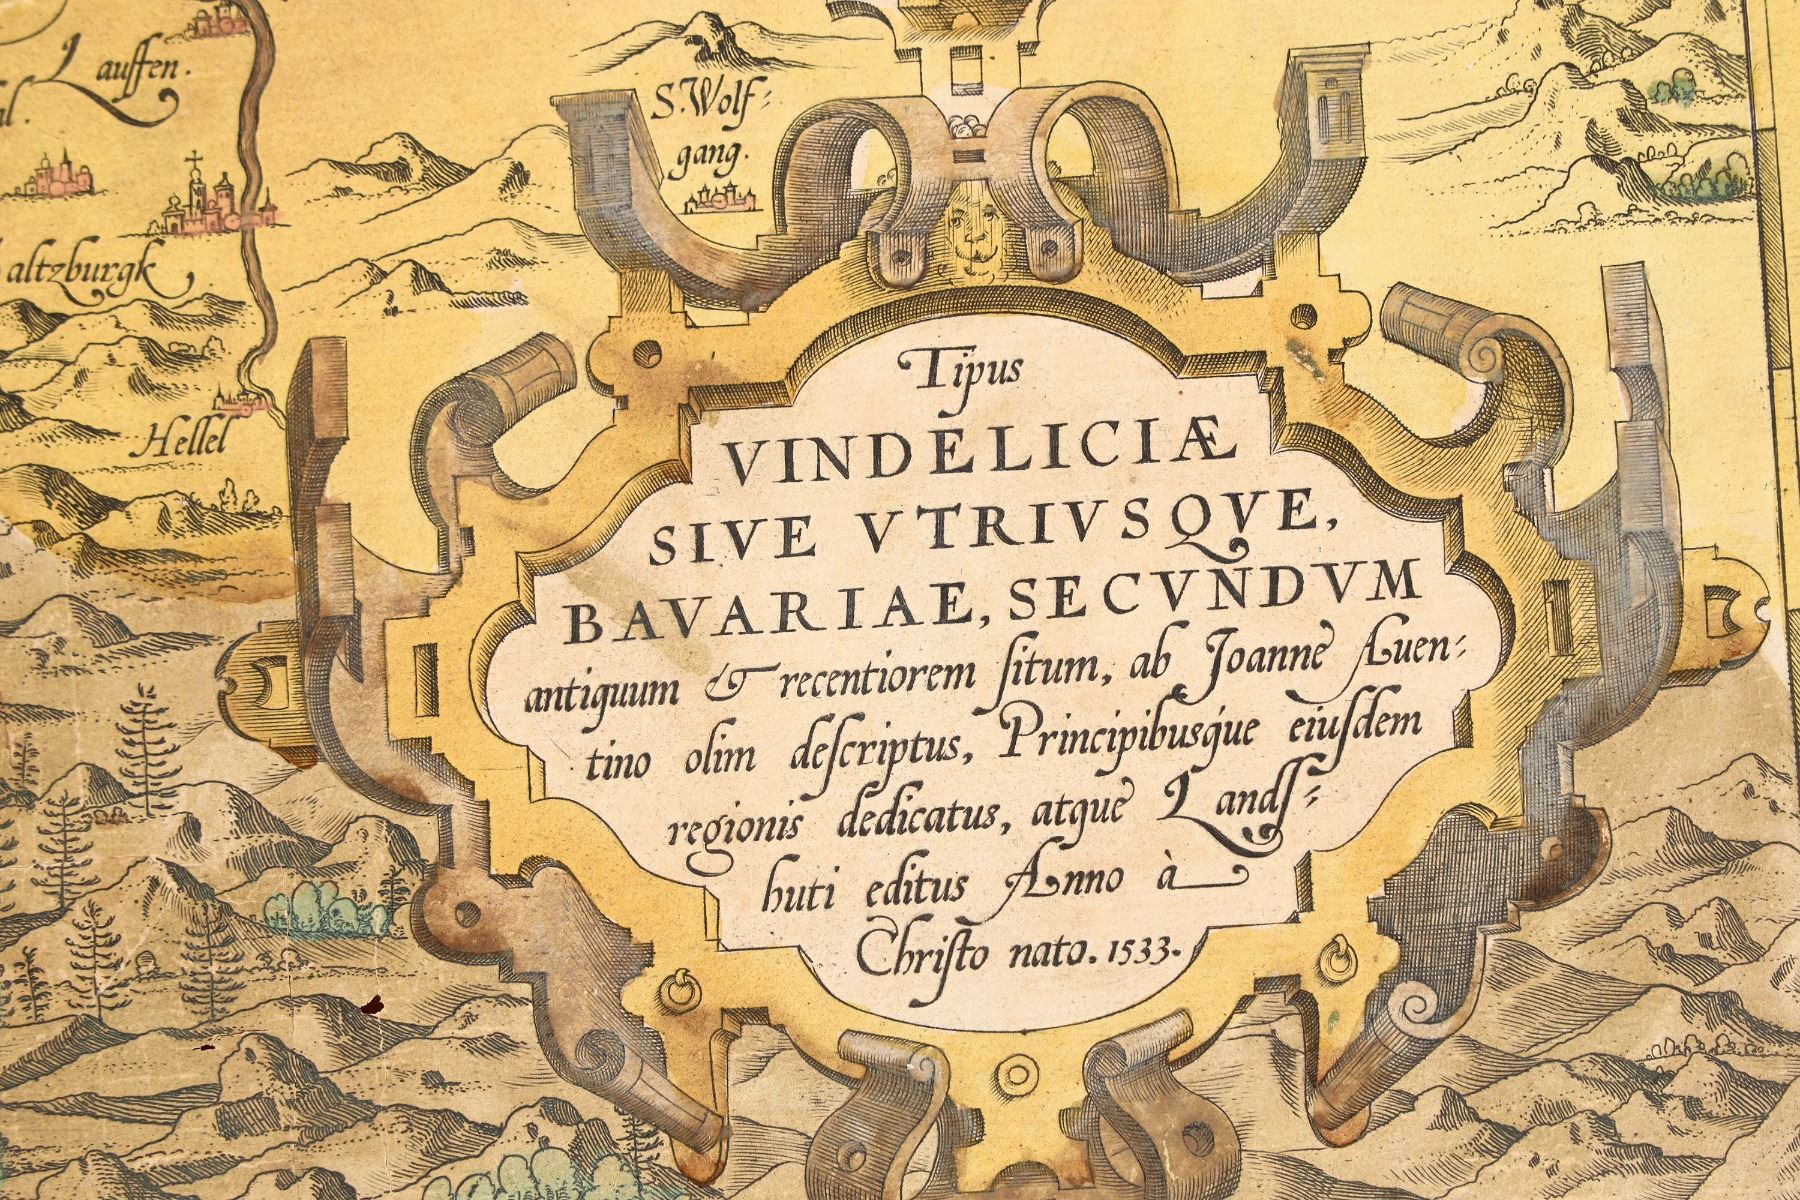 Lauffen.
al.
S. Wolf-
gang.
altzburgk
Hellel
Tipus
VINDELICIÆ
SIVE VTRIVSQVE,
BAVARIAE, SECVNDVM
antiquum & recentiorem ſitum, ab Joanne Auen-
tino olim deſcriptus, Principibusque eiuſdem
regionis dedicatus, atque Landſ-
huti editus Anno à
Chriſto nato. 1533.